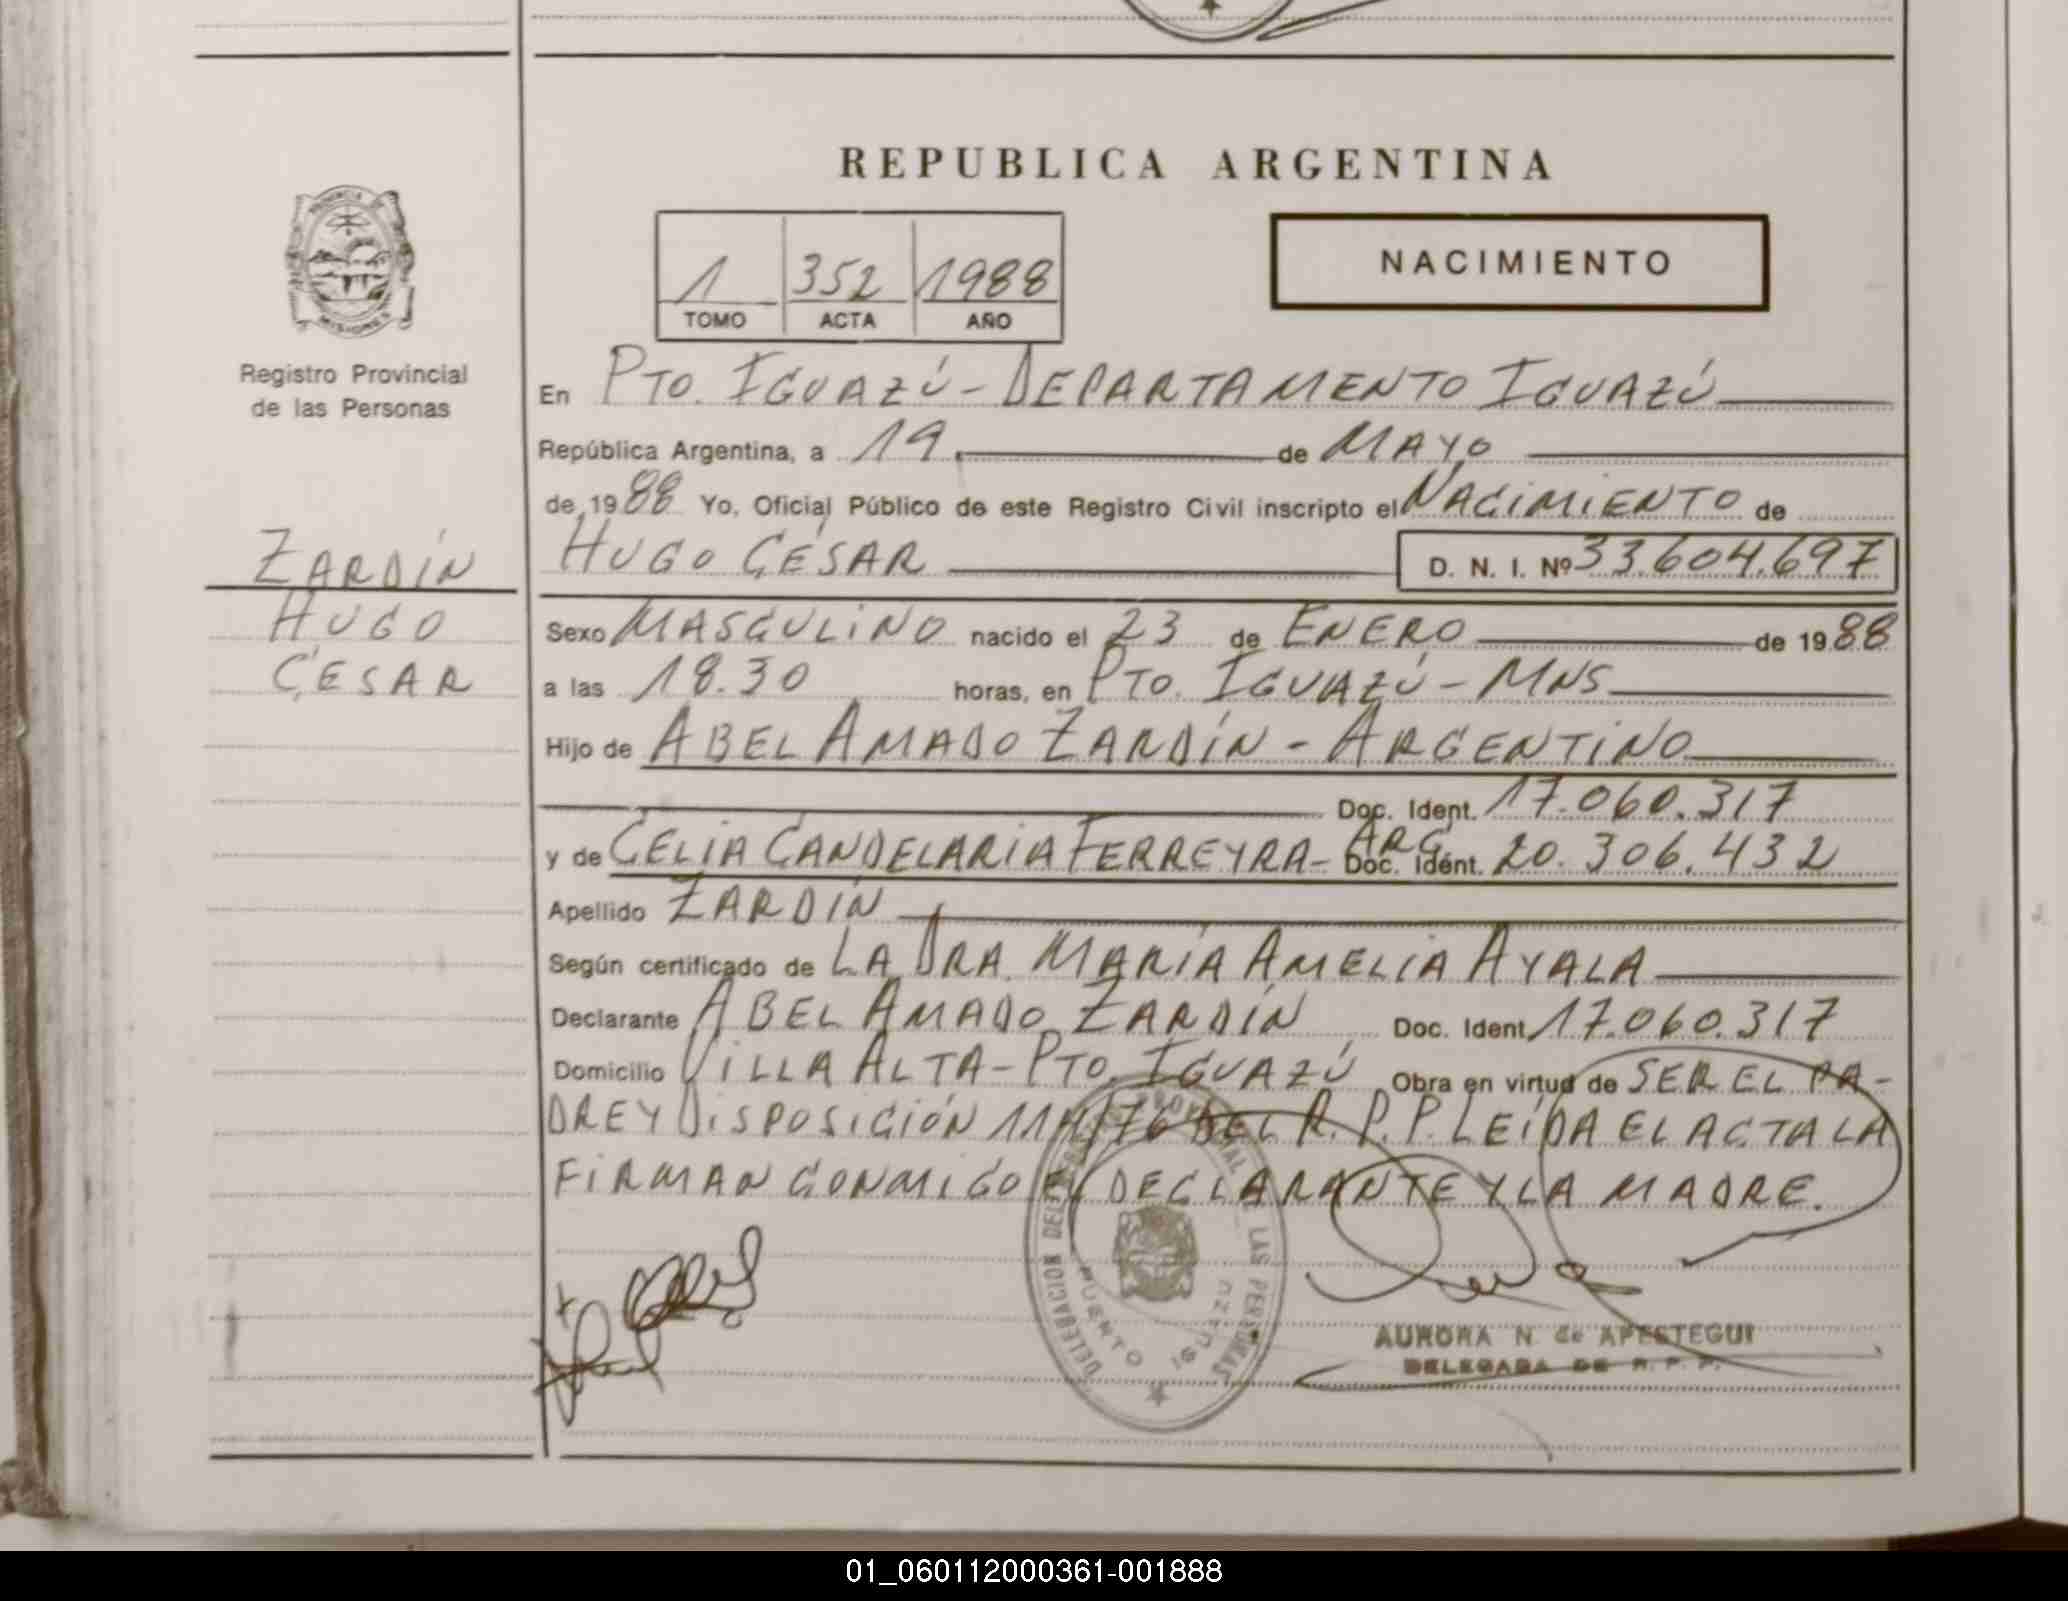 REPUBLICA ARGENTINA
PROVINCIA DE
MISIONES
Registro Provincial
de las Personas
1 352 1988
TOMO ACTA AÑO
NACIMIENTO
En PTO. IGUAZÚ - DEPARTAMENTO IGUAZÚ
República Argentina, a 19 de MAYO
de 1988 Yo, Oficial Público de este Registro Civil inscripto el NACIMIENTO de
HUGO CÉSAR D. N. I. Nº 33.604.697
ZARDÍN
HUGO
CÉSAR
Sexo MASCULINO nacido el 23 de ENERO de 1988
a las 18.30 horas, en PTO. IGUAZÚ - MNS
Hijo de ABEL AMADO ZARDÍN - ARGENTINO
Doc. Ident. 17.060.317
y de CELIA CANDELARIA FERREYRA - ARG. Doc. Ident. 20.306.432
Apellido ZARDÍN
Según certificado de LA DRA. MARÍA AMELIA AYALA
Declarante ABEL AMADO ZARDÍN Doc. Ident. 17.060.317
Domicilio VILLA ALTA - PTO. IGUAZÚ Obra en virtud de SER EL PA-
DRE Y DISPOSICIÓN DEL R.P.P. LEÍDA EL ACTA LA
FIRMAN CONMIGO EL DECLARANTE Y LA MADRE.
DELEGACION DEL REGISTRO PROVINCIAL DE LAS PERSONAS
PUERTO IGUAZU
AURORA N. de APESTEGUI
DELEGADA DE R. P. P.
01_060112000361-001888